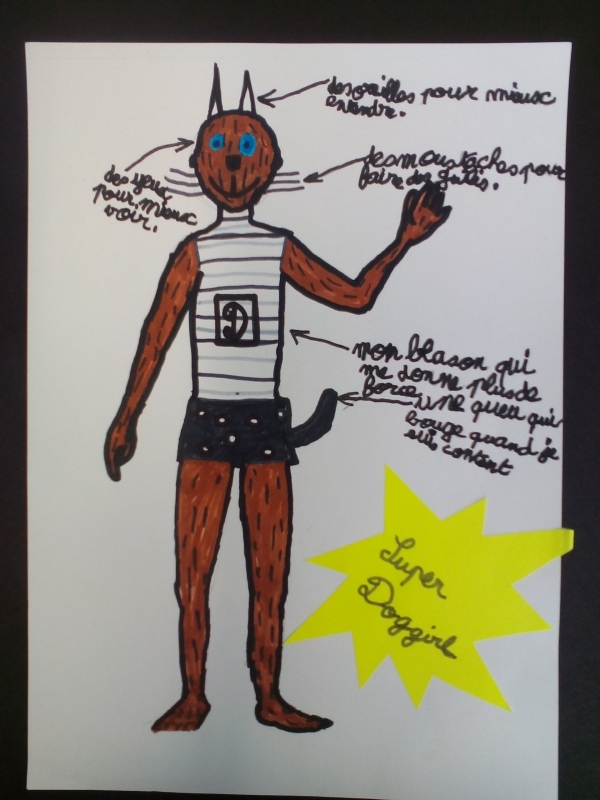 des oreilles pour mieux
entendre.
des moustaches pour
faire des guilis.
des yeux
pour mieux
voir.
D
mon blason qui
me donne plus de
force
une queu qui
bouge quand je
suis content
Super
Doggirl